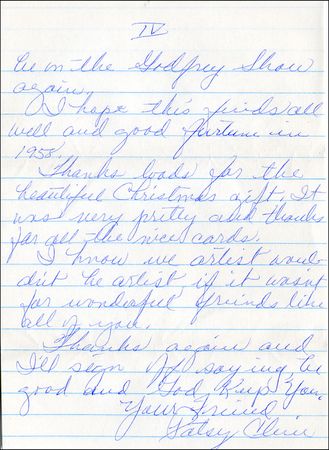 IV
be on the Godfrey Show
again.
I hope this finds all
well and good fortune in
1958.
Thanks loads for the
beautiful Christmas gift, It
was very pretty and thanks
for all the nice cards.
I know we artist would-
dn't be artist if it wasn't
for wonderful friends like
all of you.
Thanks again and
I'll sign off saying, be
good and God Keep You,
Your Friend
Patsy Cline